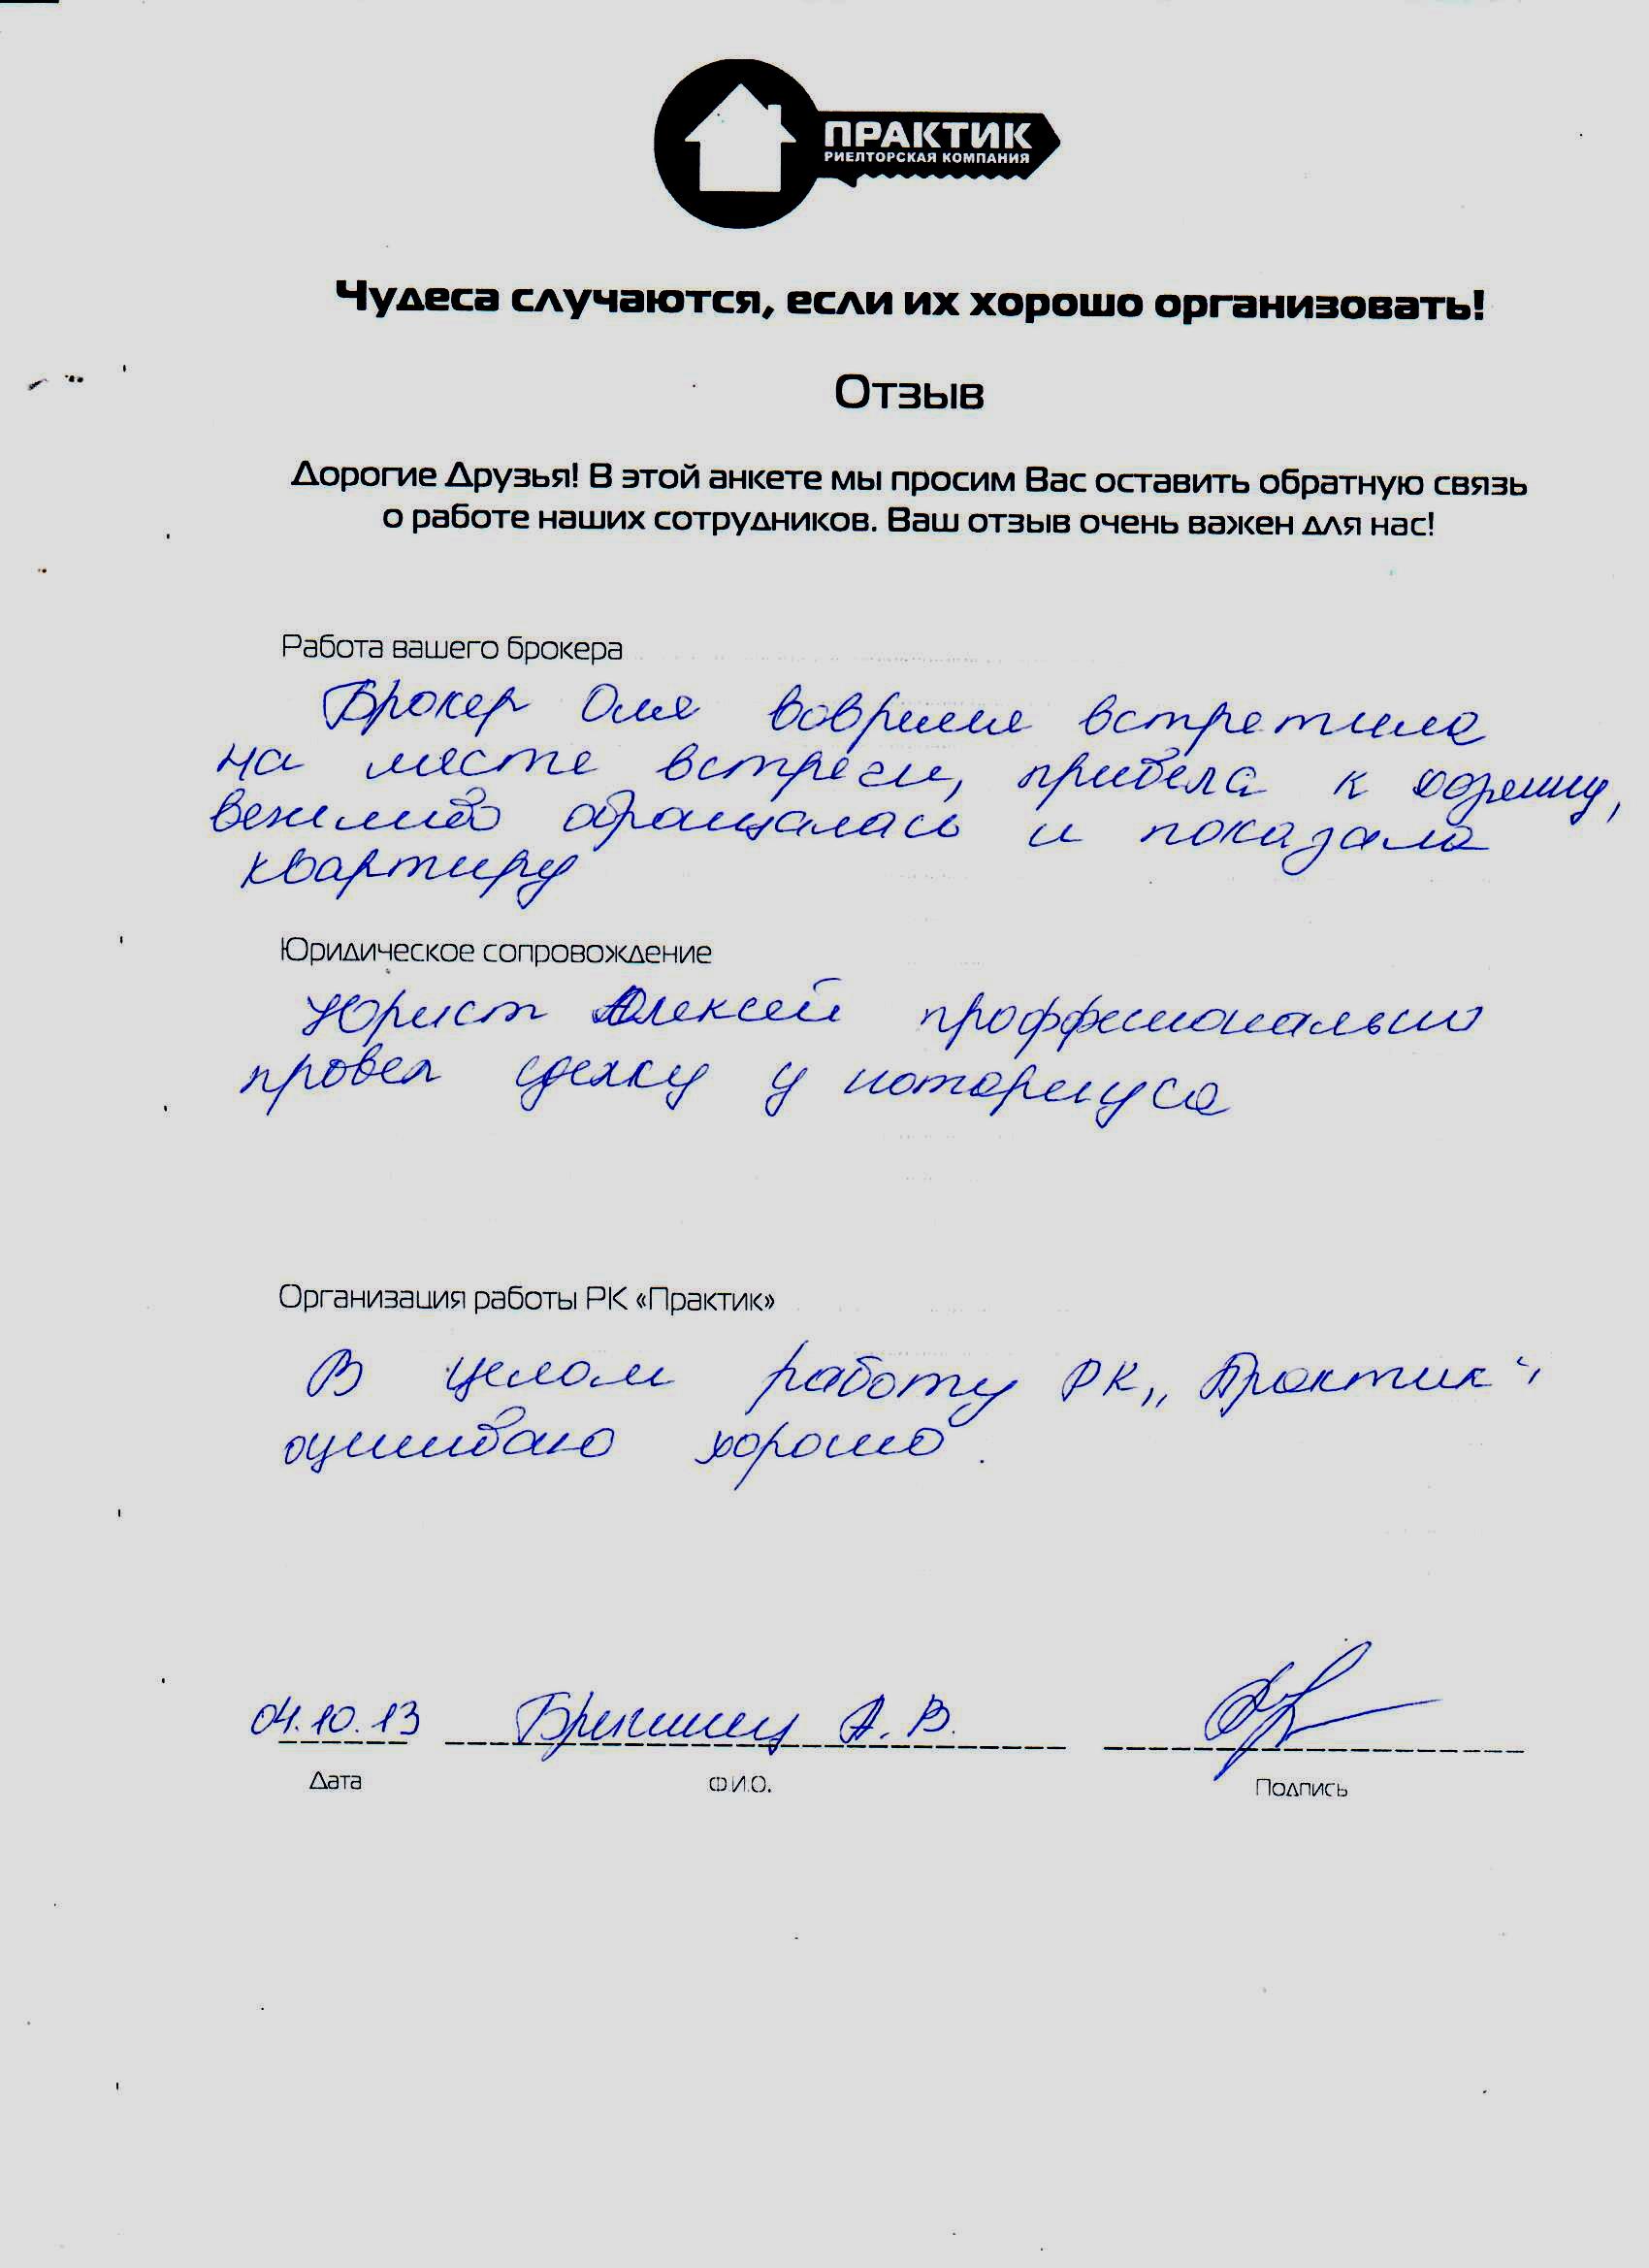 ПРАКТИК
РИЕЛТОРСКАЯ КОМПАНИЯ
Чудеса случаются, если их хорошо организовать!
Отзыв
Дорогие Друзья! В этой анкете мы просим Вас оставить обратную связь
о работе наших сотрудников. Ваш отзыв очень важен для нас!
Работа вашего брокера
Брокер Оля вовремя встретила
на месте встречи, привела к
вежливо обращалась и показала
квартиру
Юридическое сопровождение
Юрист Алексей проффесионально
провел сделку у нотариуса
Организация работы РК «Практик»
В целом работу РК „Практик“
оцениваю хорошо.
04.10.13 А. В.
Дата Ф.И.О. Подпись